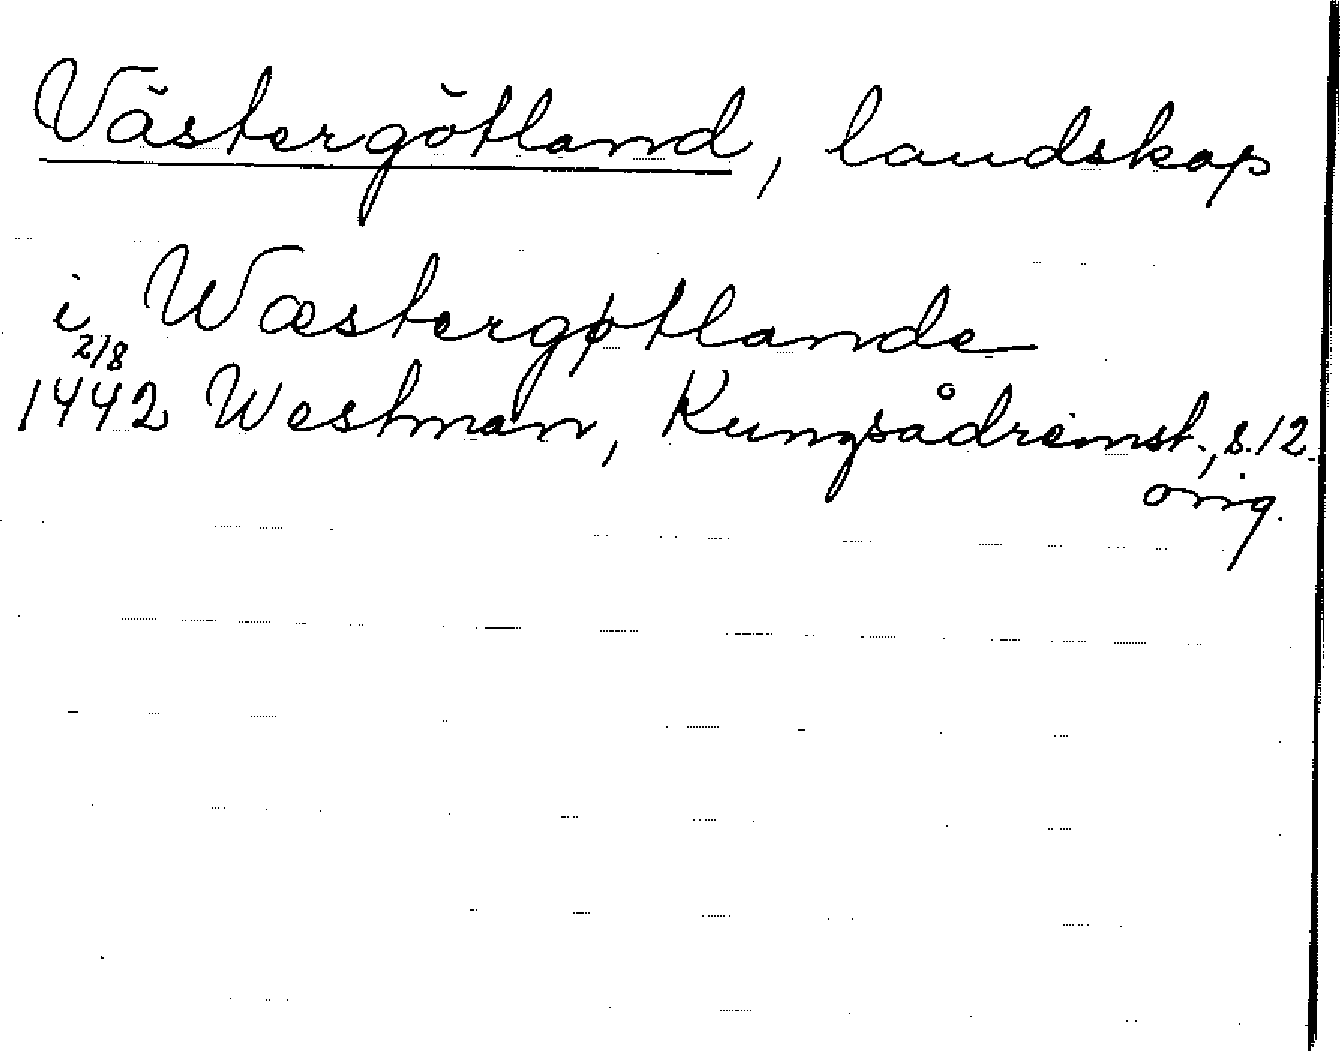 Västergötland, landskap
i Wæstergøtlande
2/8
1442 Westman, Kungsådreinst., s. 12.
orig.